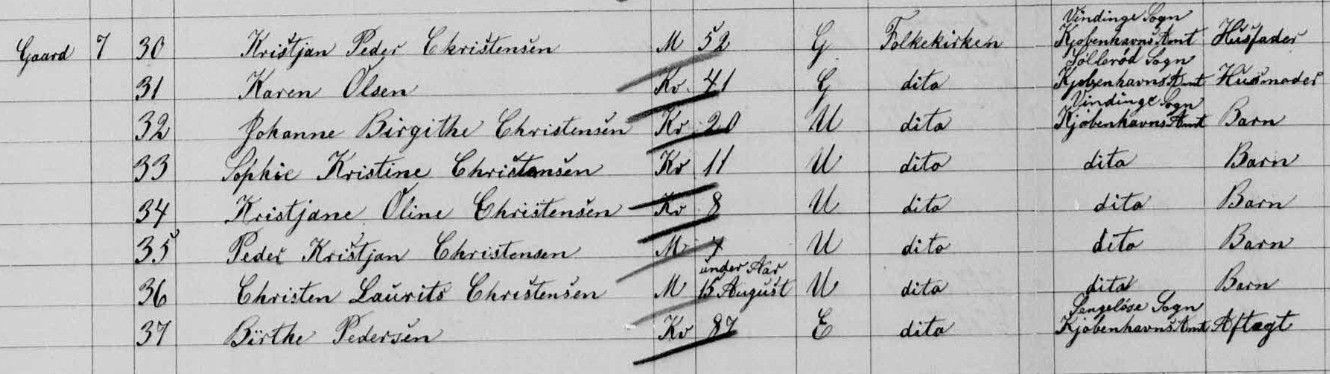 Vindinge Sogn
Gaard 7 30 Kristjan Peder Christensen M 52 G Folkekirken Kjøbenhavns Amt Husfader
Søllerød Sogn
31 Karen Olsen Kv. 41 G dito Kjøbenhavns Amt Husmoder
Vindinge Sogn
32 Johanne Birgithe Christensen Kv 20 U dito Kjøbenhavns Amt Barn
33 Sophie Kristine Christensen Kv 11 U dito dito Barn
34 Kristjane Oline Christensen Kv 8 U dito dito Barn
35 Peder Kristjan Christensen M 7 U dito dito Barn
under Aar
36 Christen Laurits Christensen M 15 August U dito dito Barn
Sengeløse Sogn
37 Birthe Pedersen Kv 87 E dito Kjøbenhavns Amt Aftægt